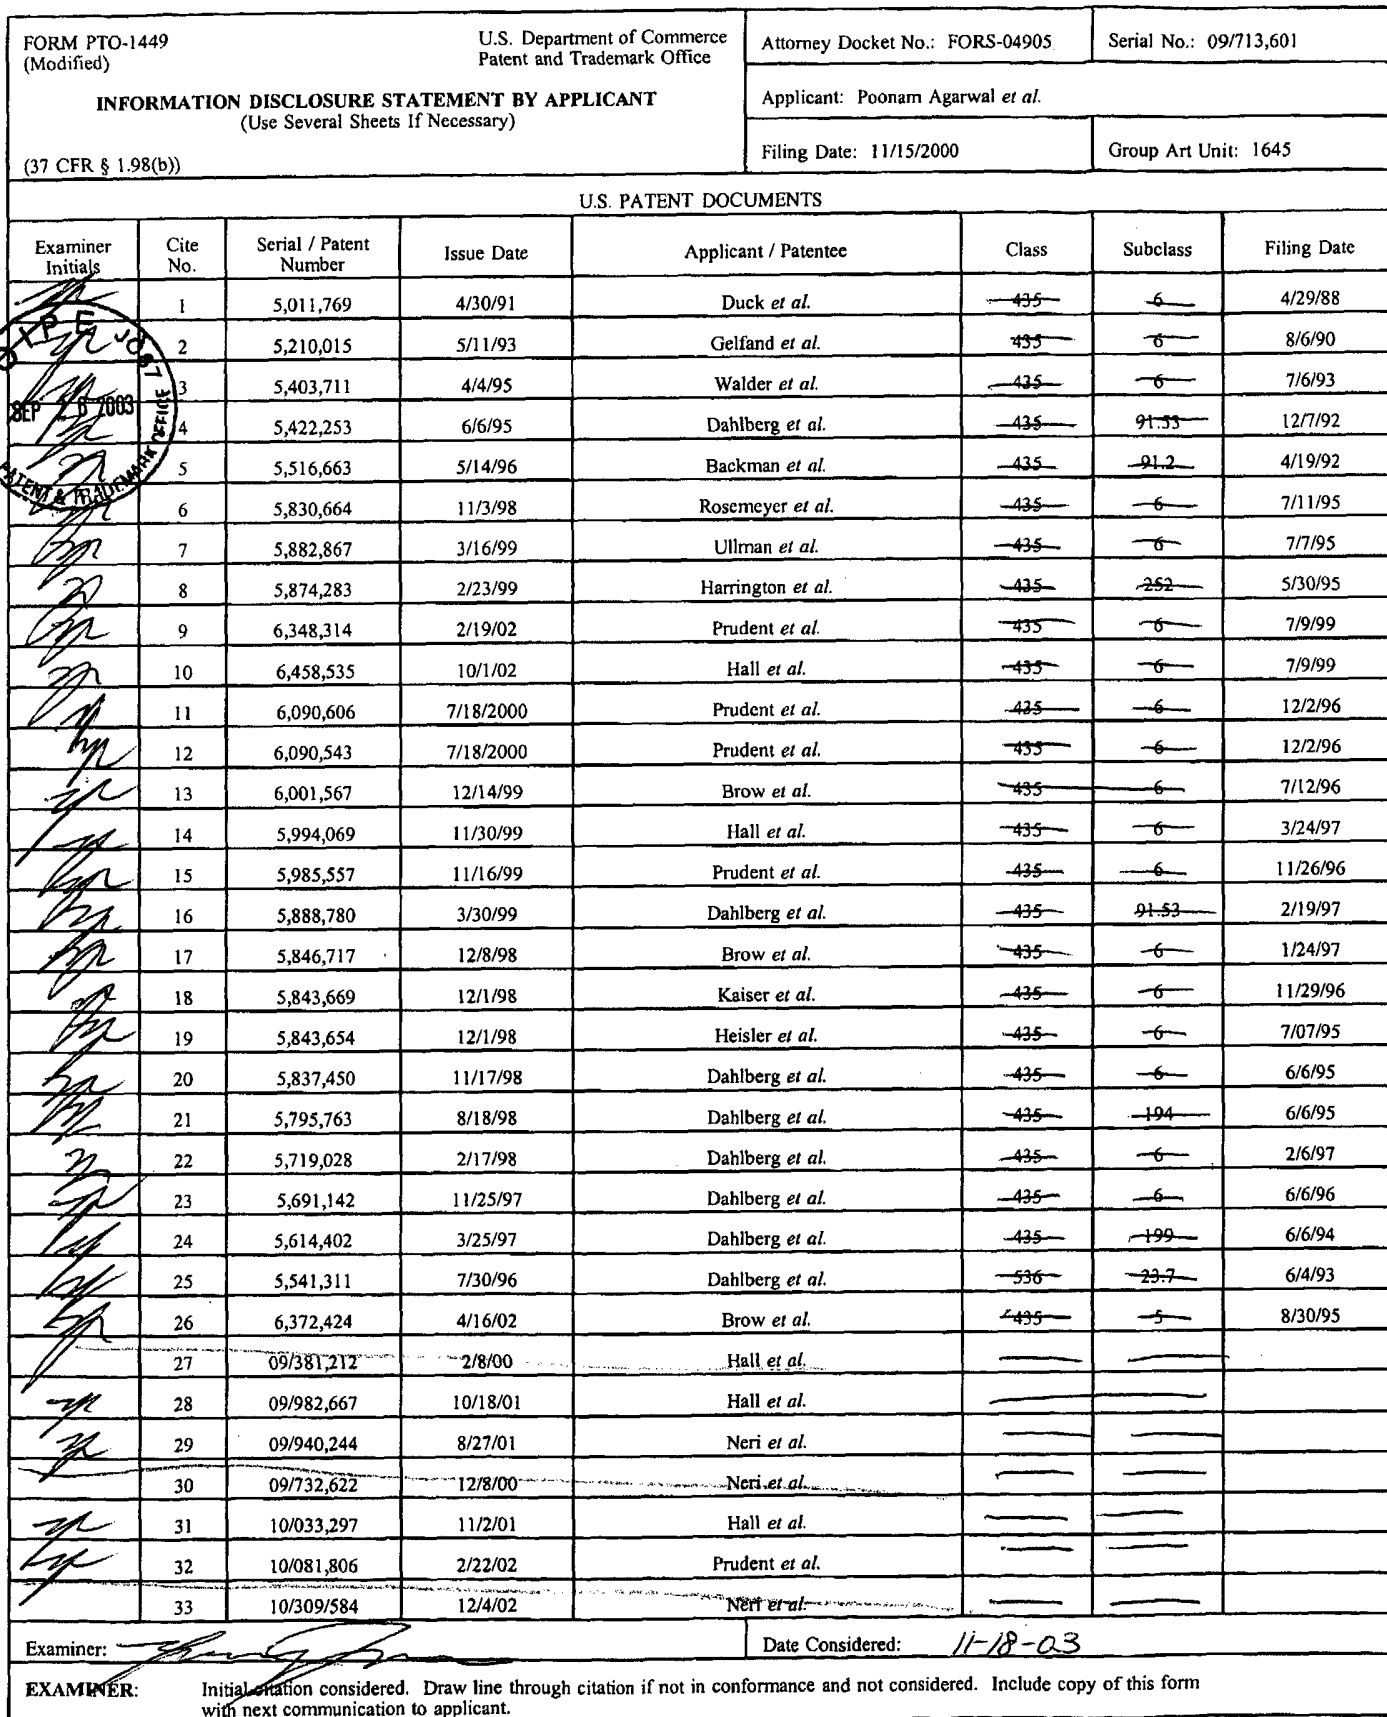 FORM PTO-1449
(Modified)
U.S. Department of Commerce
Patent and Trademark Office
INFORMATION DISCLOSURE STATEMENT BY APPLICANT
(Use Several Sheets If Necessary)
(37 CFR § 1.98(b))
Attorney Docket No.: FORS-04905
Serial No.: 09/713,601
Applicant: Poonam Agarwal et al.
Filing Date: 11/15/2000
Group Art Unit: 1645
U.S. PATENT DOCUMENTS
Examiner Initials Cite No. Serial / Patent Number Issue Date Applicant / Patentee Class Subclass Filing Date
1 5,011,769 4/30/91 Duck et al. 435 6 4/29/88
2 5,210,015 5/11/93 Gelfand et al. 435 6 8/6/90
3 5,403,711 4/4/95 Walder et al. 435 6 7/6/93
4 5,422,253 6/6/95 Dahlberg et al. 435 91.53 12/7/92
5 5,516,663 5/14/96 Backman et al. 435 91.2 4/19/92
6 5,830,664 11/3/98 Rosemeyer et al. 435 6 7/11/95
7 5,882,867 3/16/99 Ullman et al. 435 6 7/7/95
8 5,874,283 2/23/99 Harrington et al. 435 252 5/30/95
9 6,348,314 2/19/02 Prudent et al. 435 6 7/9/99
10 6,458,535 10/1/02 Hall et al. 435 6 7/9/99
11 6,090,606 7/18/2000 Prudent et al. 435 6 12/2/96
12 6,090,543 7/18/2000 Prudent et al. 435 6 12/2/96
13 6,001,567 12/14/99 Brow et al. 435 6 7/12/96
14 5,994,069 11/30/99 Hall et al. 435 6 3/24/97
15 5,985,557 11/16/99 Prudent et al. 435 6 11/26/96
16 5,888,780 3/30/99 Dahlberg et al. 435 91.53 2/19/97
17 5,846,717 12/8/98 Brow et al. 435 6 1/24/97
18 5,843,669 12/1/98 Kaiser et al. 435 6 11/29/96
19 5,843,654 12/1/98 Heisler et al. 435 6 7/07/95
20 5,837,450 11/17/98 Dahlberg et al. 435 6 6/6/95
21 5,795,763 8/18/98 Dahlberg et al. 435 194 6/6/95
22 5,719,028 2/17/98 Dahlberg et al. 435 6 2/6/97
23 5,691,142 11/25/97 Dahlberg et al. 435 6 6/6/96
24 5,614,402 3/25/97 Dahlberg et al. 435 199 6/6/94
25 5,541,311 7/30/96 Dahlberg et al. 536 23.7 6/4/93
26 6,372,424 4/16/02 Brow et al. 435 5 8/30/95
27 09/381,212 2/8/00 Hall et al.
28 09/982,667 10/18/01 Hall et al.
29 09/940,244 8/27/01 Neri et al.
30 09/732,622 12/8/00 Neri et al.
31 10/033,297 11/2/01 Hall et al.
32 10/081,806 2/22/02 Prudent et al.
33 10/309/584 12/4/02 Neri et al.
OIPE
SEP 26 2003
PATENT & TRADEMARK OFFICE
Examiner:
Date Considered: 11-18-03
EXAMINER: Initial citation considered. Draw line through citation if not in conformance and not considered. Include copy of this form
with next communication to applicant.